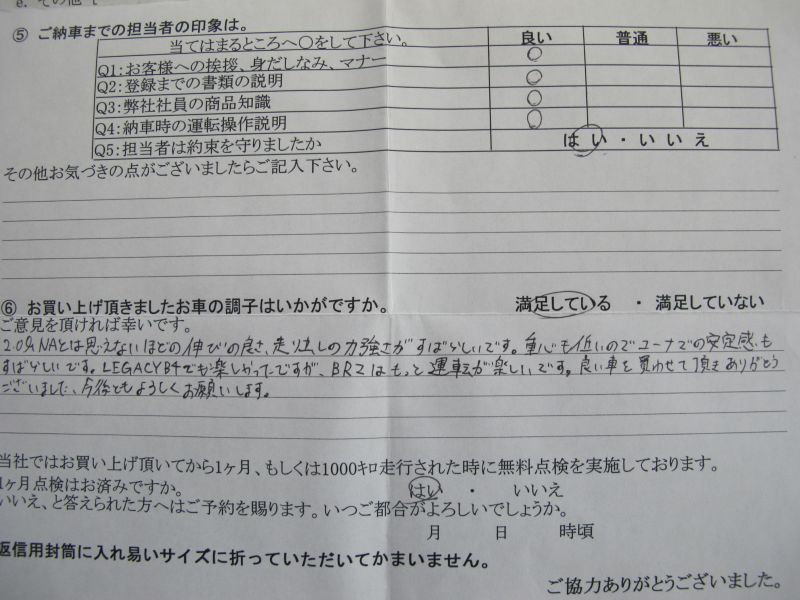 e. その他
⑤ ご納車までの担当者の印象は。
当てはまるところへ○をして下さい。 良い 普通 悪い
Q1：お客様への挨拶、身だしなみ、マナー ○
Q2：登録までの書類の説明 ○
Q3：弊社社員の商品知識 ○
Q4：納車時の運転操作説明 ○
Q5：担当者は約束を守りましたか はい・いいえ
その他お気づきの点がございましたらご記入下さい。
⑥ お買い上げ頂きましたお車の調子はいかがですか。 満足している ・ 満足していない
ご意見を頂ければ幸いです。
2.0ℓNAとは思えないほどの伸びの良さ、走り出しの力強さがすばらしいです。重心も低いのでコーナでの安定感も
すばらしいです。LEGACY B4でも楽しかったですが、BRZはもっと運転が楽しいです。良い車を買わせて頂きありがとう
ございました、今後ともよろしくお願いします。
当社ではお買い上げ頂いてから1ヶ月、もしくは1000キロ走行された時に無料点検を実施しております。
1ヶ月点検はお済みですか。 はい ・ いいえ
いいえ、と答えられた方へはご予約を賜ります。いつご都合がよろしいでしょうか。
月 日 時頃
返信用封筒に入れ易いサイズに折っていただいてかまいません。
ご協力ありがとうございました。